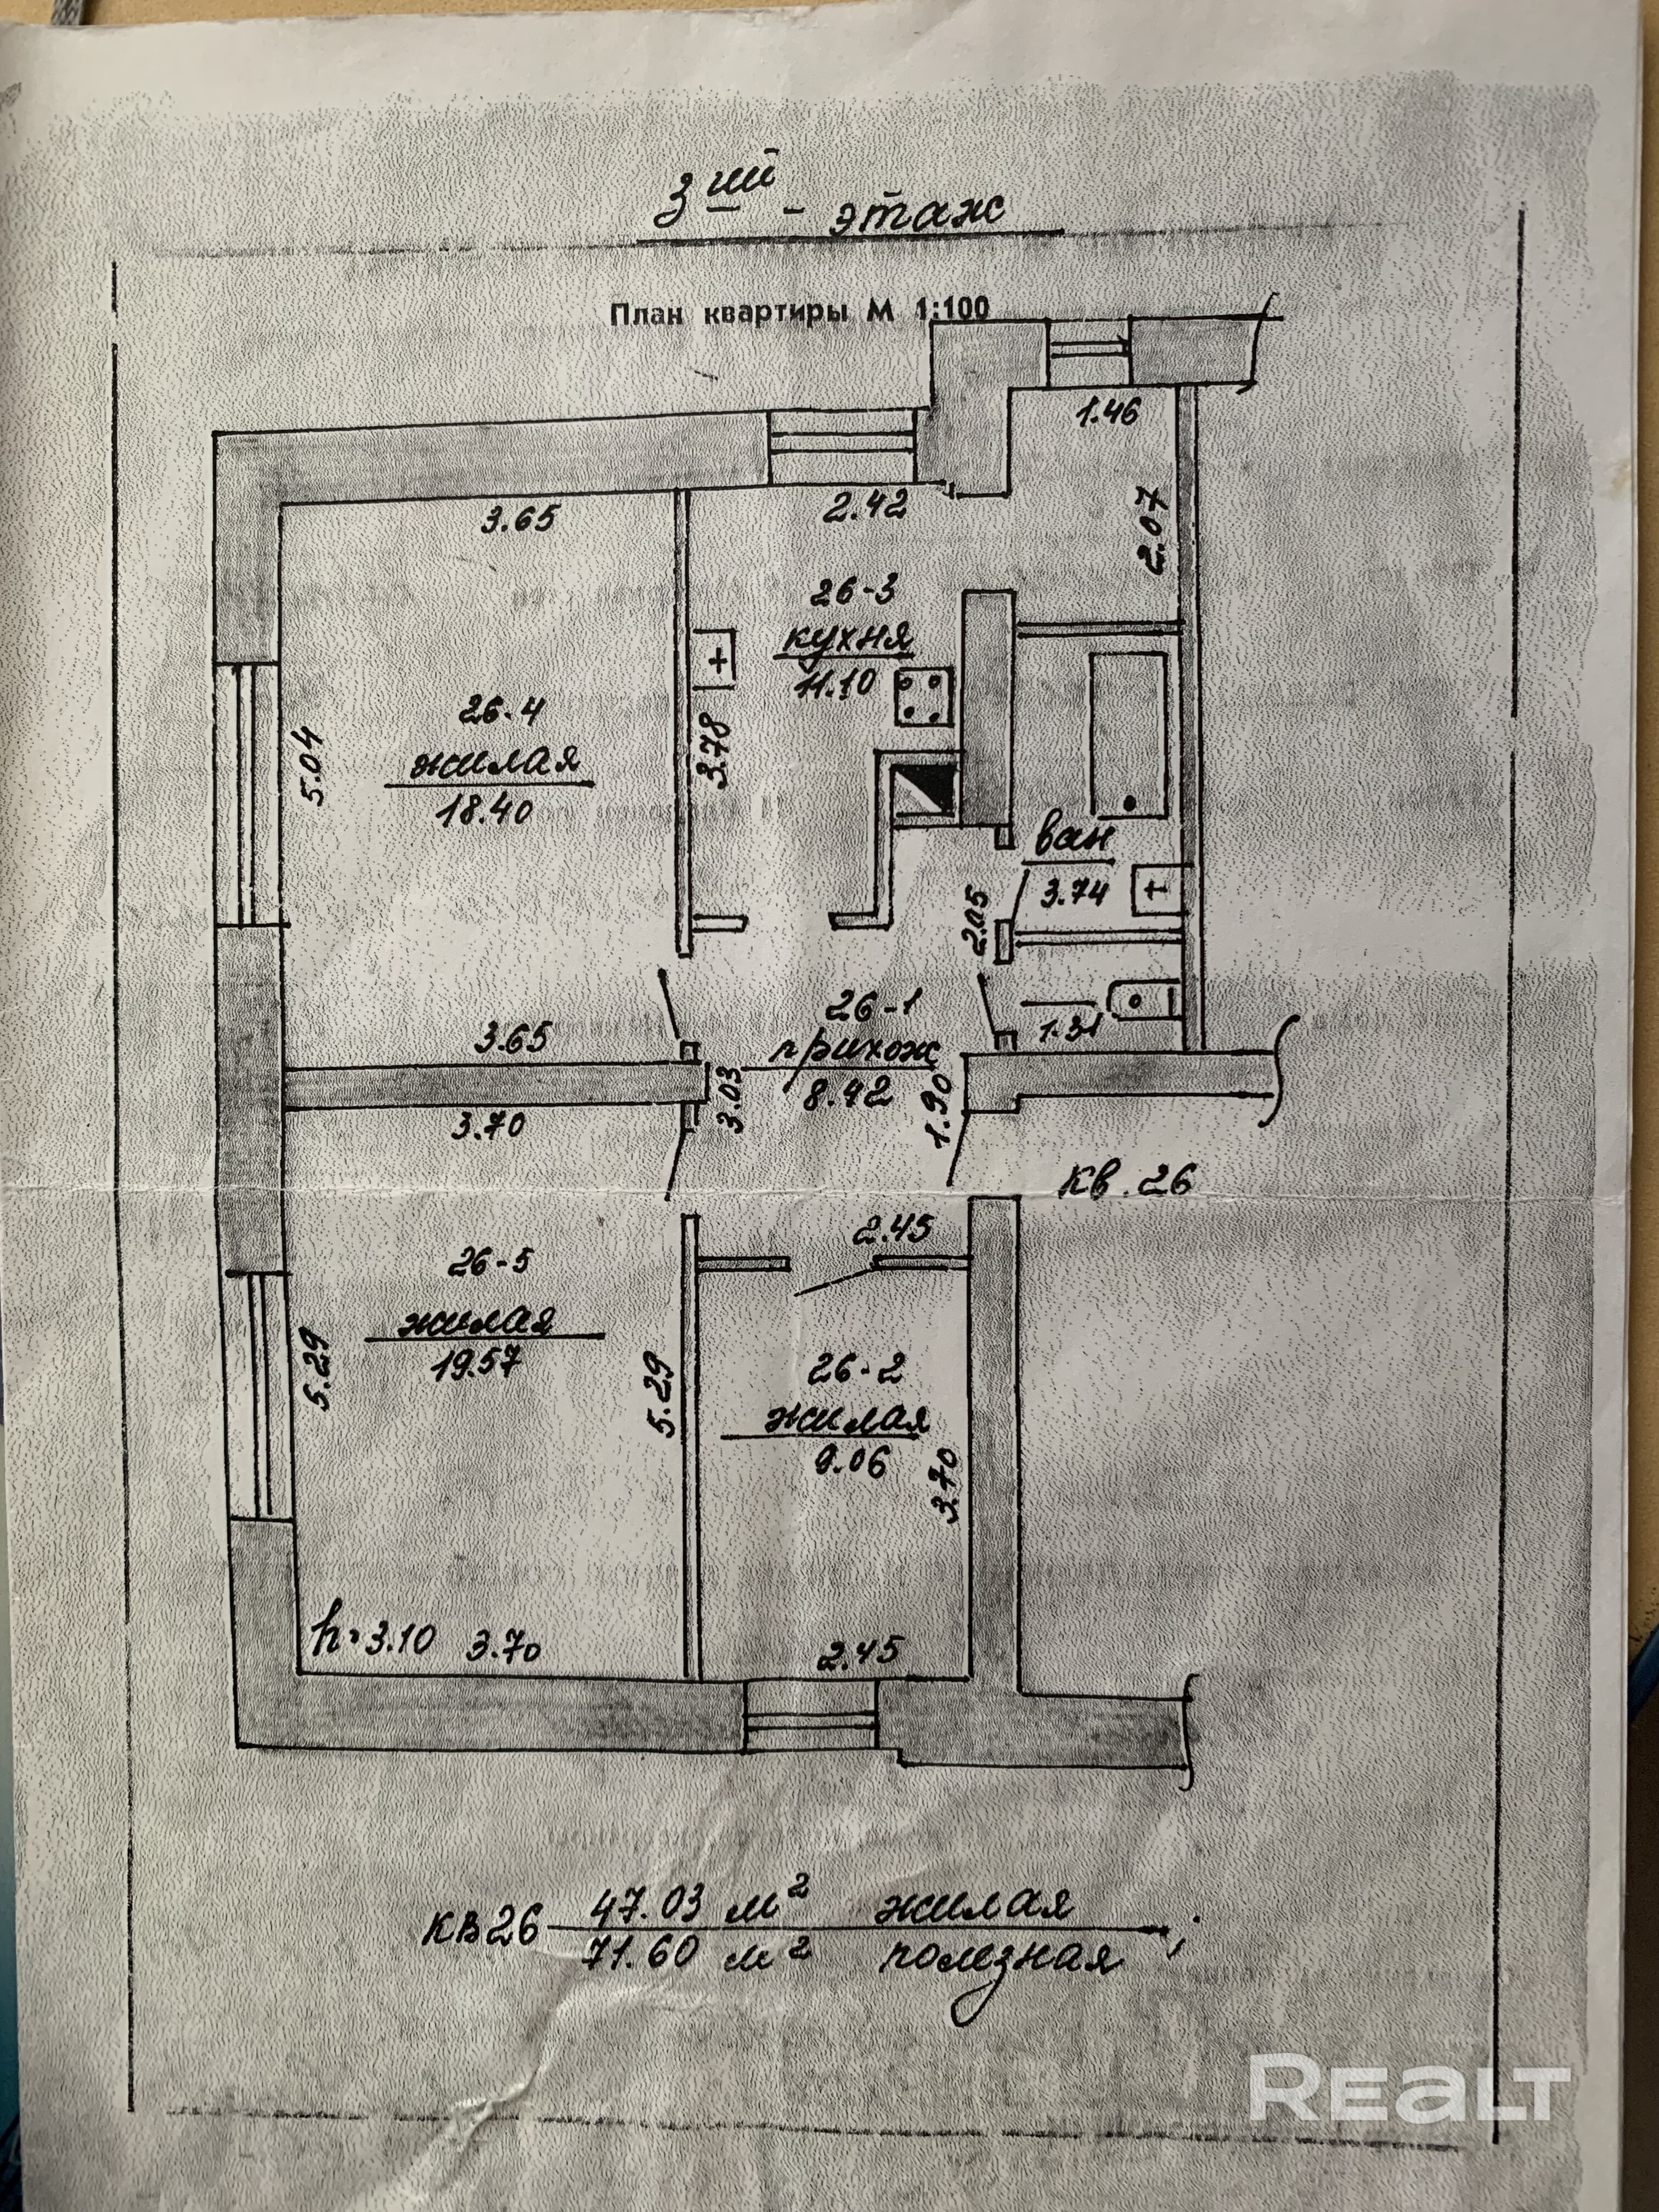 3ий - этаж
План квартиры М 1:100
1.46
3.65
2.42
2.07
26-3
кухня
11.10
26-4
жилая
18.40
5.04
3.78
ван
3.74
2.05
26-1
прихож
8.42
1.31
3.65
3.03
1.90
3.70
кв. 26
2.45
26-5
жилая
19.57
5.29
5.29
26-2
жилая
9.06
3.70
h=3.10 3.70
2.45
кв26 47.03 м² жилая
71.60 м² полезная ;
REALT